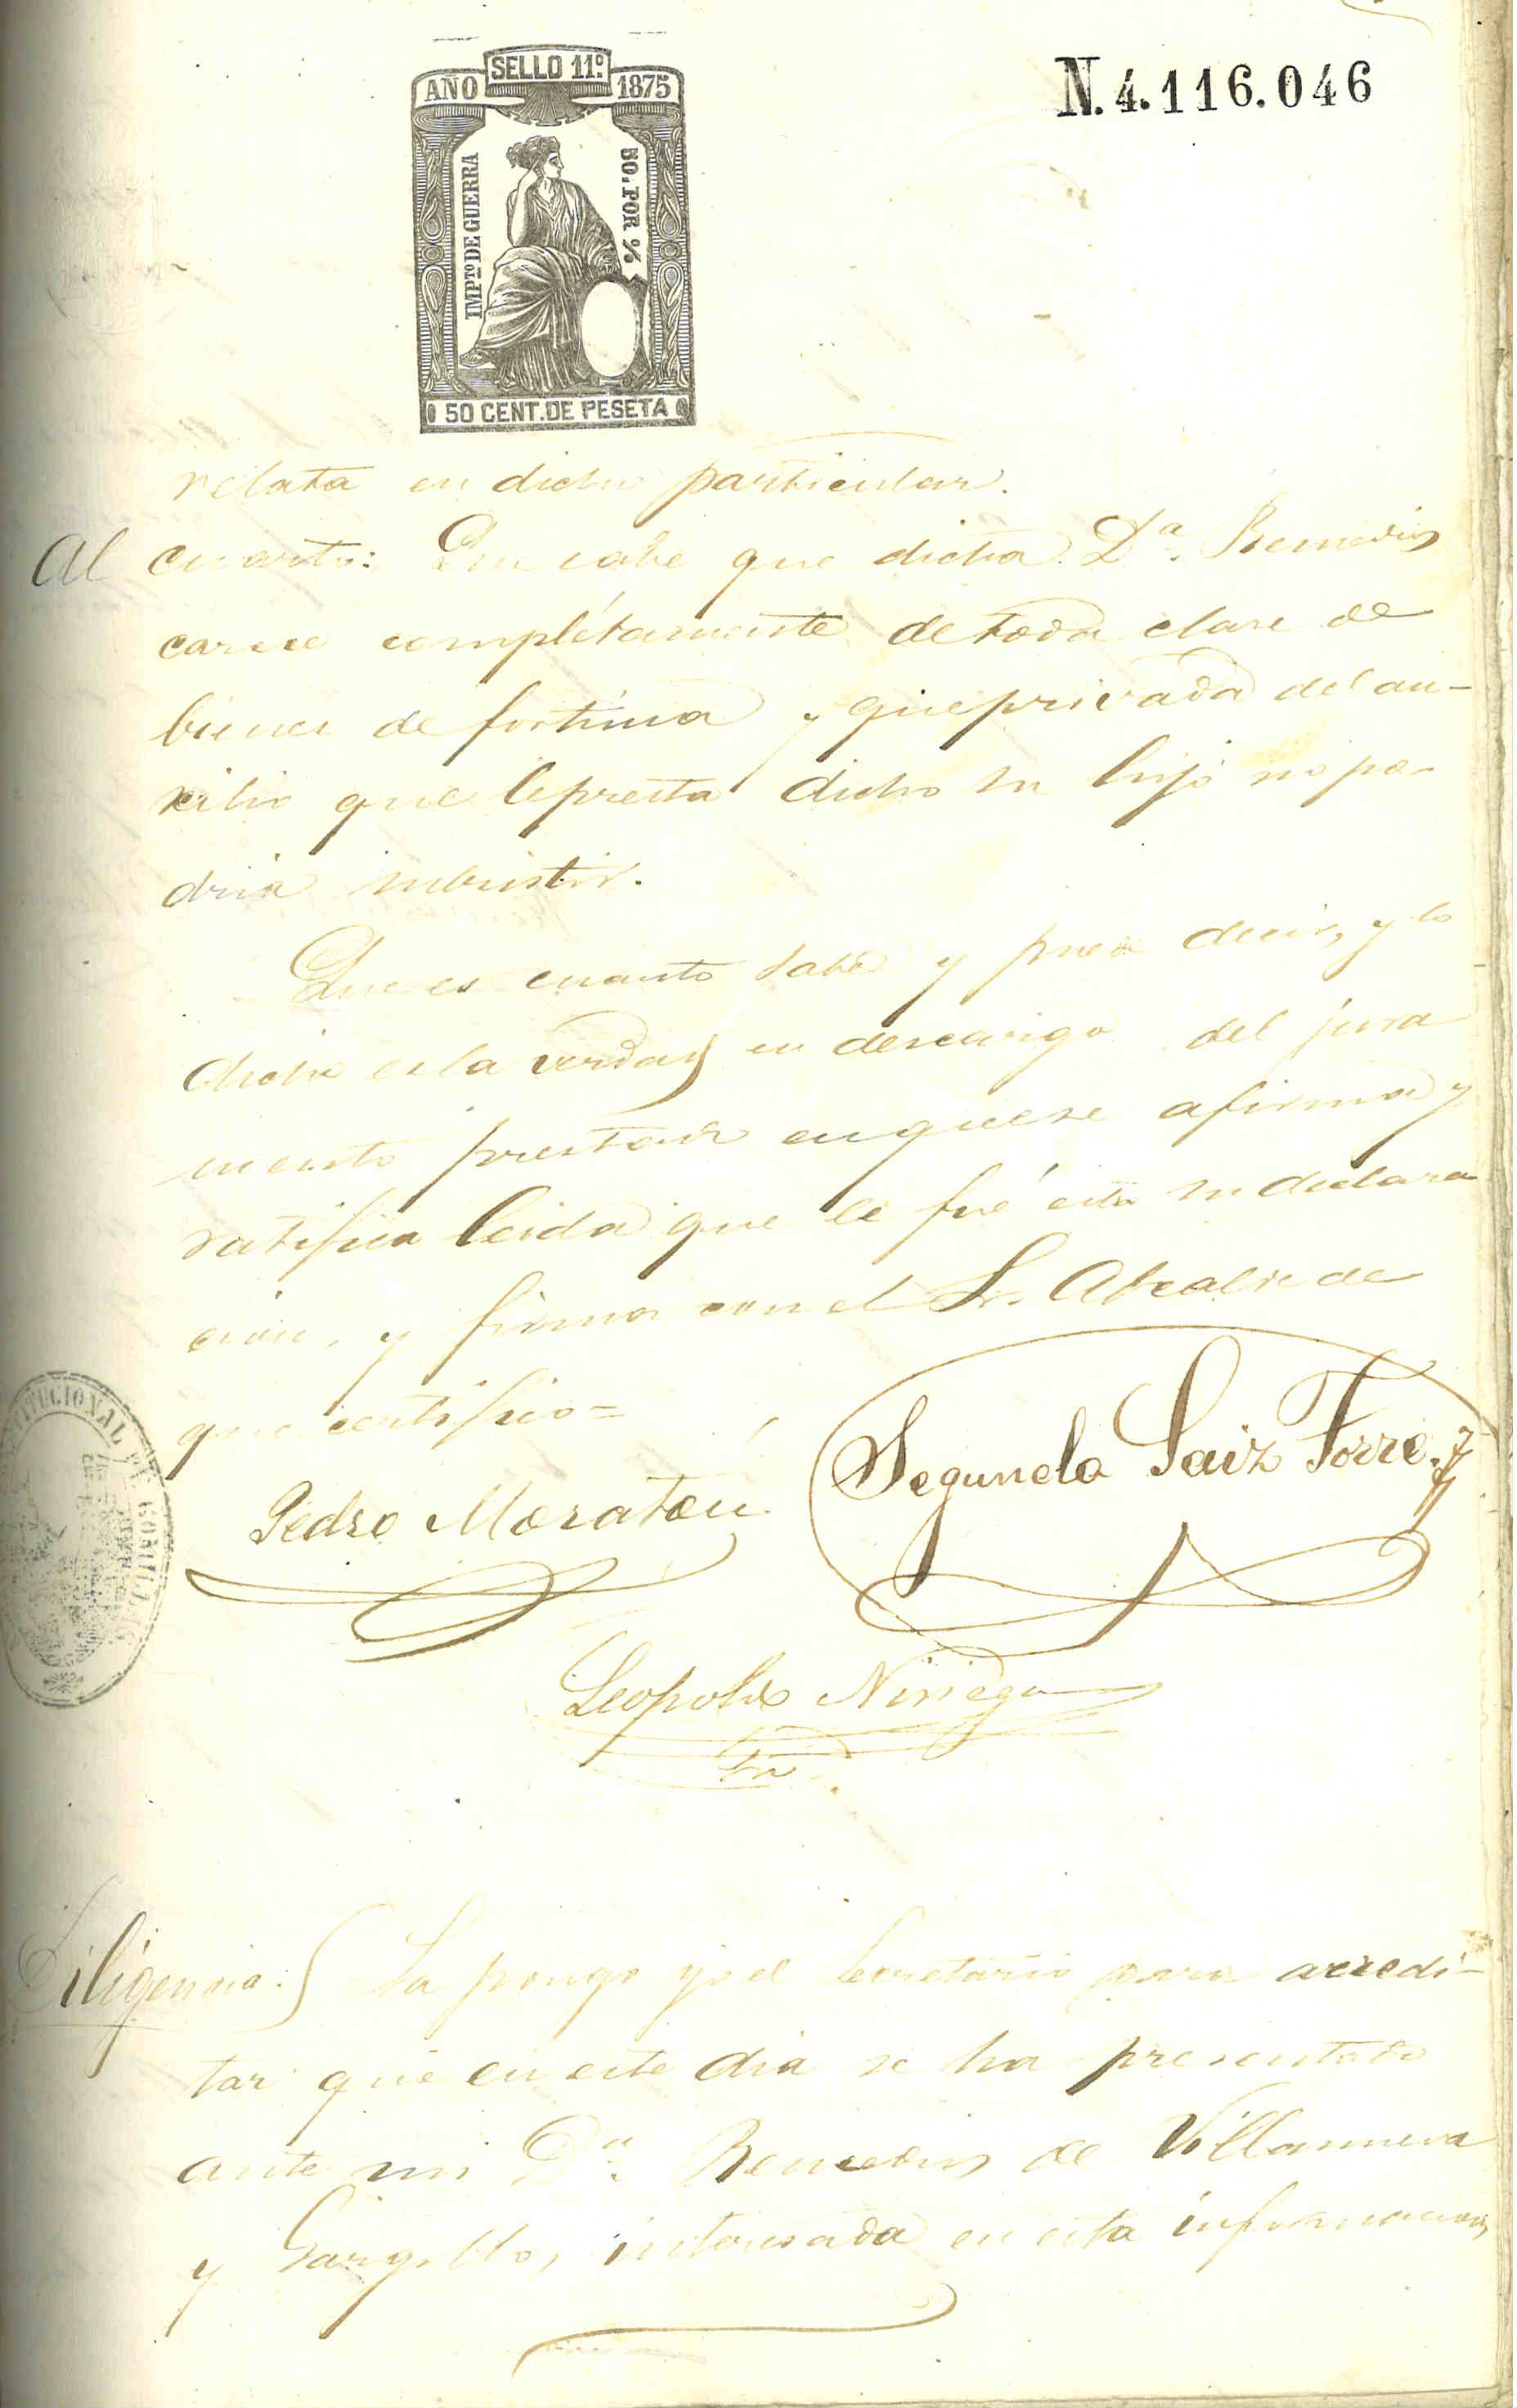 SELLO 11º
AÑO 1875
N. 4.116.046
IMPTO DE GUERRA
50. POR %
50 CENT. DE PESETA
relata en dicho particular.
Al cuarto: Que sabe que dicha Dª. Remedios
carece complétamente de toda clase de
bienes de fortuna y que privada del au-
xilio que le presta dicho su hijo no po-
dria subsistir.
Que es cuanto sabe y puede decir, y lo
dicho es la verdad en descargo del jura
mento prestado en que se afirma y
ratifica leida que le fué esta su declara
cion, y firma con el Sr. Alcalde de
que certifico=
Pedro Moratón
Segundo Saiz Torre
Leopoldo Noriega
Diligencia: La pongo yo el Secretario para acredi-
tar que en este dia se ha presentado
ante mi Dª. Remedios de Villanueva
y Gargollo, interesada en esta informacion,